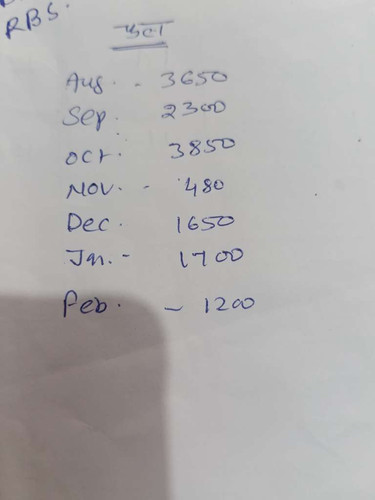 RBS.
Aug. - 3650
Sep. 2300
Oct. 3850
Nov. - 480
Dec. 1650
Jan. - 1700
Feb. - 1200